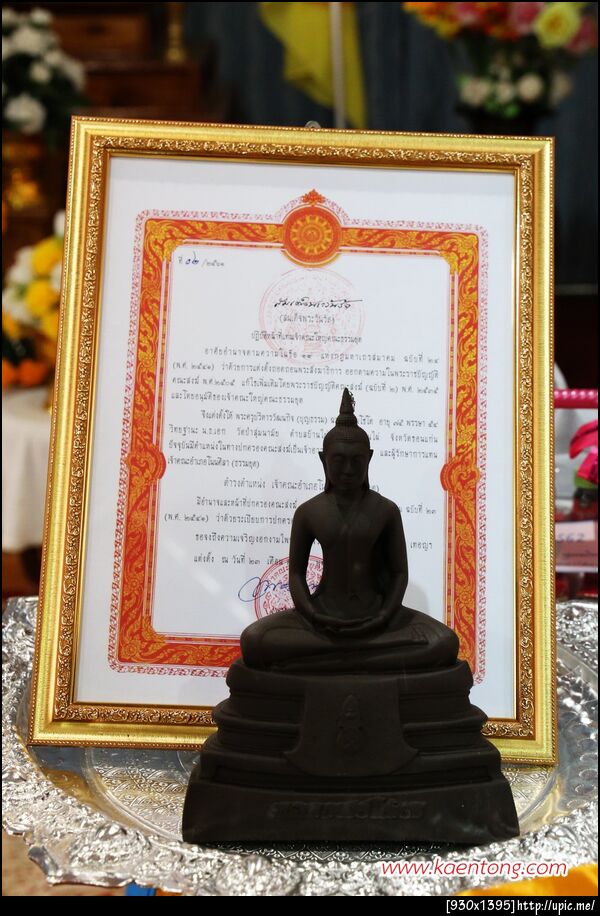 ที่ ๐๒ /๒๕๖๑
(สมเด็จพระวันรัต)
ปฏิบัติหน้าที่แทนเจ้าคณะใหญ่คณะธรรมยุต
อาศัยอำนาจตามความในข้อ ๑๑ แห่งกฎมหาเถรสมาคม ฉบับที่ ๒๔
(พ.ศ. ๒๕๔๑) ว่าด้วยการแต่งตั้งถอดถอนพระสังฆาธิการ ออกตามความในพระราชบัญญัติ
คณะสงฆ์ พ.ศ.๒๕๐๕ แก้ไขเพิ่มเติมโดยพระราชบัญญัติคณะสงฆ์ (ฉบับที่ ๒) พ.ศ.๒๕๓๕
และโดยอนุมัติของเจ้าคณะใหญ่คณะธรรมยุต
จึงแต่งตั้งให้ พระครูบริหารวัฒนกิจ (บุญธรรม) อายุ ๗๕ พรรษา ๕๔
วิทยฐานะ น.ธ.เอก วัดป่าสุมนามัย ตำบลบ้านไผ่ จังหวัดขอนแก่น
ปัจจุบันมีตำแหน่งในทางปกครองคณะสงฆ์เป็นเจ้า และผู้รักษาการแทน
เจ้าคณะอำเภอโนนศิลา (ธรรมยุต)
ดำรงตำแหน่ง เจ้าคณะอำเภอ
มีอำนาจและหน้าที่ปกครองคณะสงฆ์ ฉบับที่ ๒๓
(พ.ศ. ๒๕๔๑) ว่าด้วยระเบียบการปกครอง
ขอจงถึงความเจริญงอกงาม เทอญฯ
แต่งตั้ง ณ วันที่ ๒๓
www.kaentong.com
[930x1395]http://upic.me/